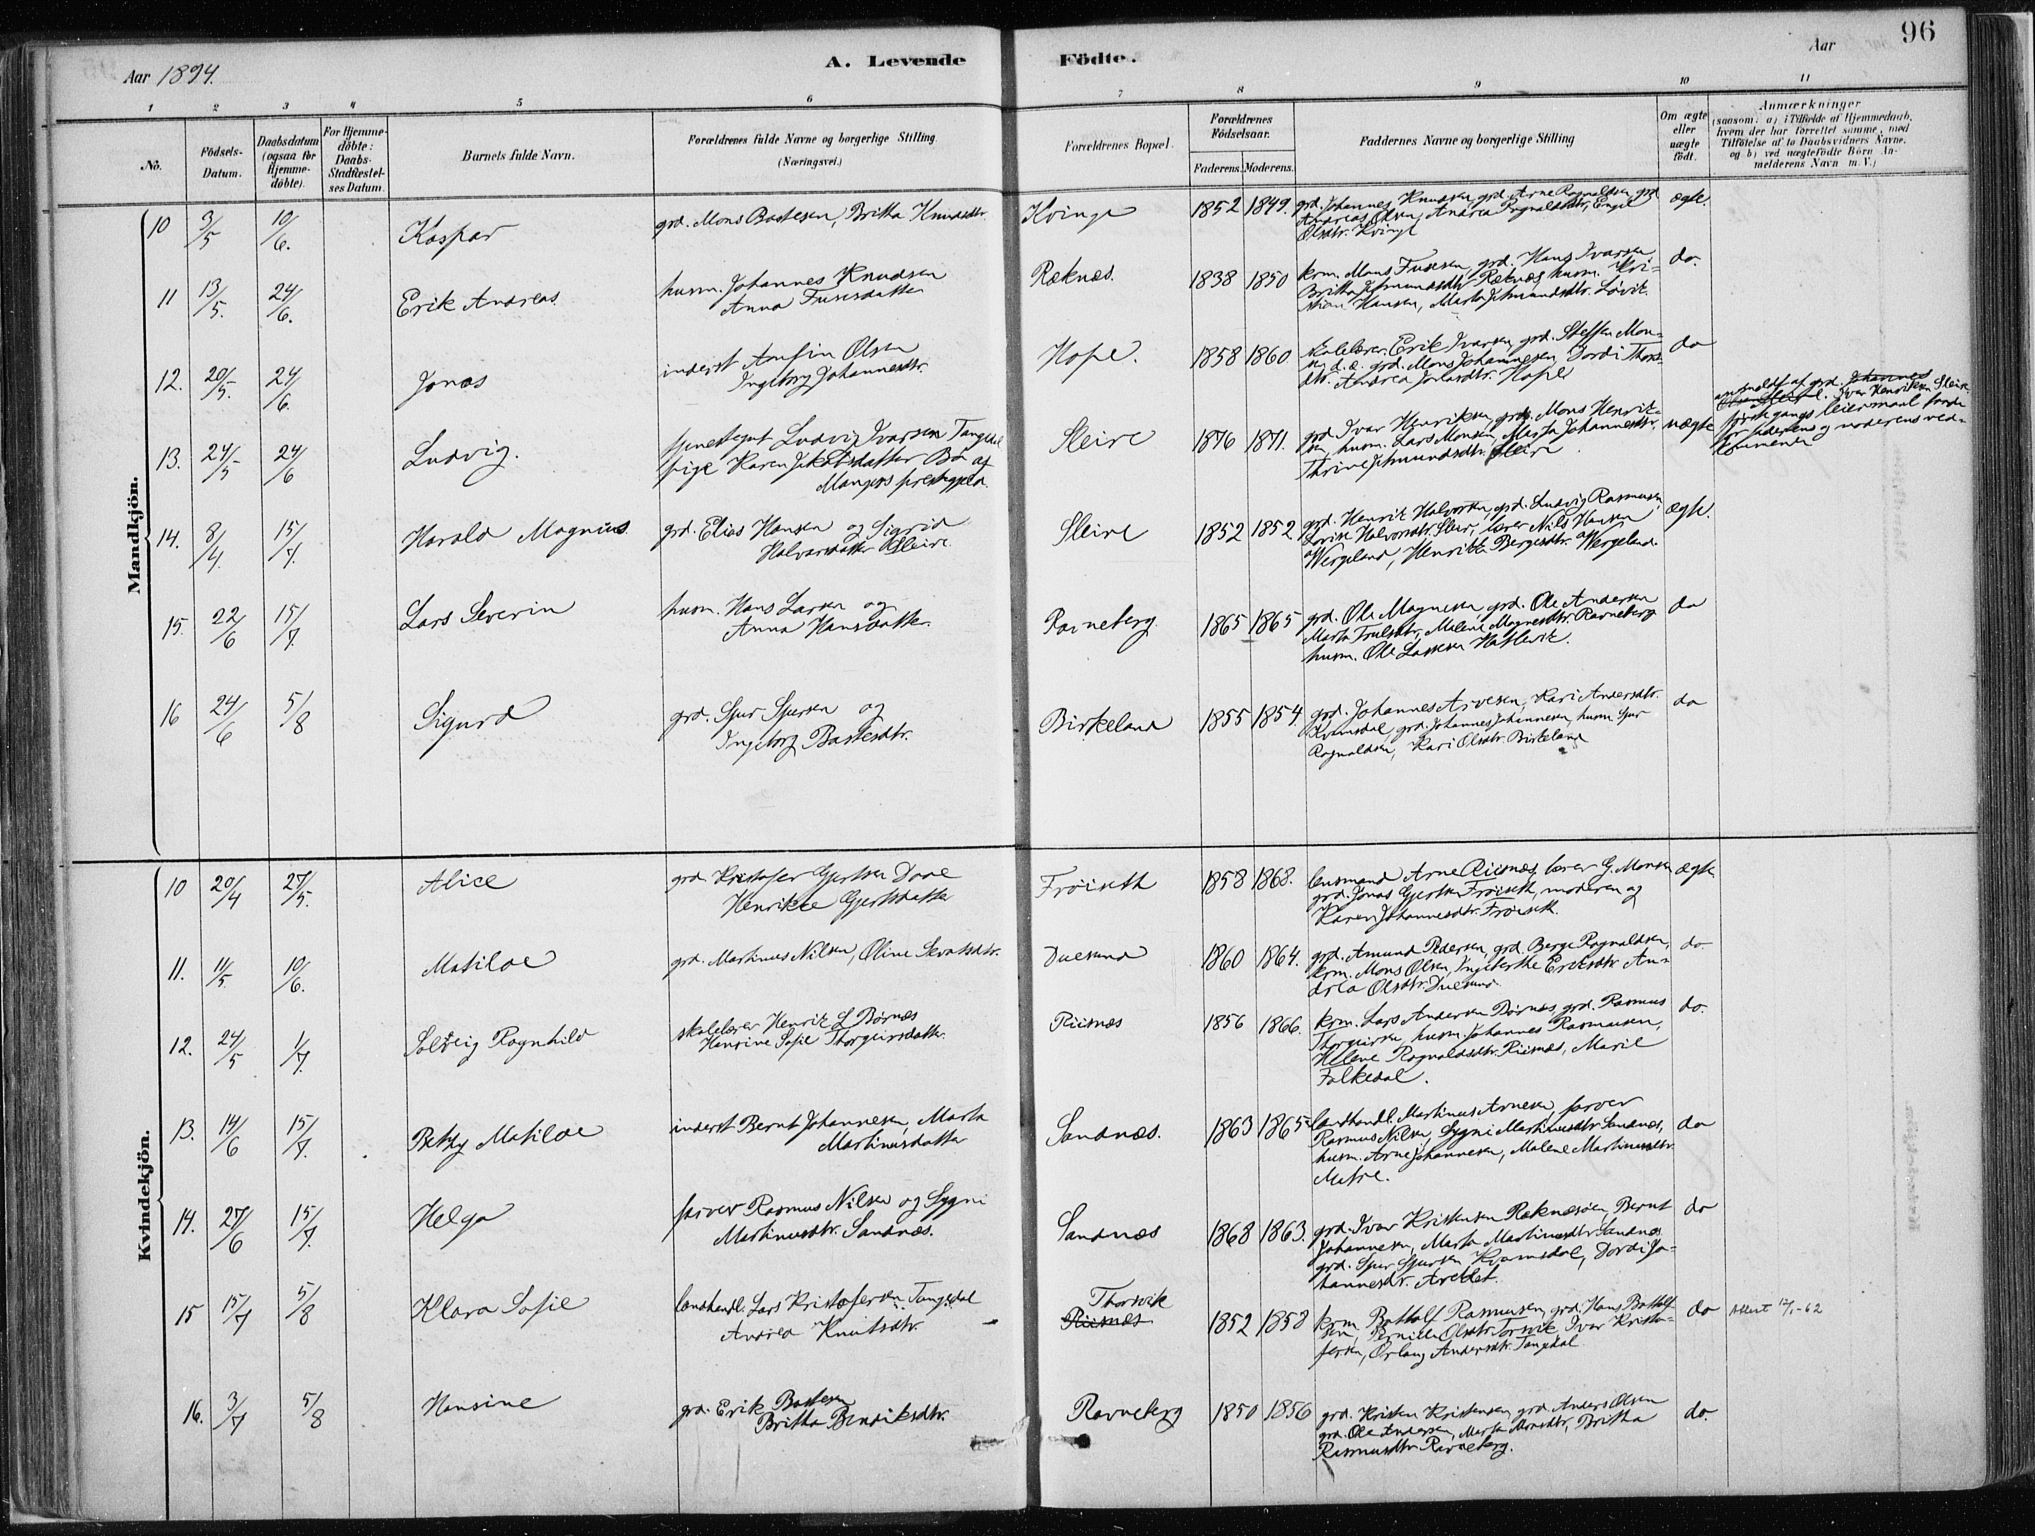 96
Aar 1894.
A. Levende
Födte.
Aar
1 2 3 4 5 6 7 8 9 10 11
No.
Födsels-
Datum.
Daabsdatum
(ogsaa for
Hjemme-
döbte).
For Hjemme-
döbte:
Daabs-
Stadfæstel-
ses Datum.
Barnets fulde Navn.
Forældrenes fulde Navne og borgerlige Stilling
(Næringsvei.)
Forældrenes Bopæl.
Forældrenes
Födselsaar.
Faderens. Moderens.
Faddernes Navne og borgerlige Stilling
Om ægte
eller
uægte
födt.
Anmærkninger
(saasom: a) i Tilfælde af Hjemmedaab,
hvem der har forrettet samme, med
Tilföielse af to Daabsvidners Navne,
og b) ved uægtefödte Börn An-
melderens Navn m. V.)
Mandkjön.
10 3/5 10/6. Kaspar
grd. Mons Bastesen, Britha Knudsdtr.
Kvinge 1852 1849.
grd. Johannes Knudsen, grd. Arne Ragnaldsen, grd
Andreas Olsen, Andrea Ragnaldsdtr, Engel
Olsdtr. Kvinge
ægte.
11 13/5. 24/6. Erik Andreas
husm. Johannes Knudsen
Anna Fusesdatter
Ræknæs. 1838 1850
krm. Mons Fusesen, grd. Hans Ivarsen,
Britha Amundsdtr Ræknæs, husm. Kri-
stian Hansen, Marta Amundsdtr. Lövik
do.
12. 20/5. 24/6. Jonas
inderst Anfin Olsen
Ingeborg Johannesdtr.
Hope. 1858 1860
skolelærer Erik Ivarsen, grd. Steffen Mon-
sen d. e. grd. Mons Johannesen, Dordi Thors-
dtr. Andrea Jonasdtr. Hope
do
13. 24/5 24/6 Ludvig.
tjenestegut Ludvig Ivarsen Tangedal
pige Karen Jakobsdatter Bö af
Mangers præstegjeld.
Sleire 1876 1871.
grd Ivar Henriksen, grds. Mons Henrik-
sen, husm. Lars Monsen, Marta Johannesdtr.
Thrine Amundsdtr. Sleire
uægte
anmeldt af grd. Johannes
Ivar Henriksen Sleire.
förste gangs leiermaal baade
for faderens og moderens ved-
kommende
14. 8/4. 15/7. Harald Magnus
grd. Elias Hansen og Sigrid
Halvorsdatter Sleire
Sleire 1852 1852
grd. Henrik Halvorsen, grd. Ludvig Rasmusen,
Lovise Halvorsdtr. Sleir, lærer Nils Hansen
Wergeland, Henrikke Bergesdtr. Wergeland.
ægte.
15. 22/6 15/7. Lars Severin
husm. Hans Larsen og
Anna Hansdatter.
Ravneberg 1865 1865
grd. Ole Magnesen, grd. Ole Andersen
Marta Trulsdtr, Malene Magnesdtr. Ravneberg
husm. Ole Lassesen Hatlevik.
do
16 24/6 5/8 Sigurd
grd. Sjur Sjursen og
Ingeborg Bastesdtr.
Birkeland 1855 1854.
grd. Johannes Arvesen, Kari Andersdtr.
Kvamsdal, grd. Johannes Johannesen, husm Sjur
Ragnaldsen, Kari Olsdtr. Birkeland
do
Kvindekjön.
10 20/4 27/5. Alice
grd. Kristofer Gjertsen Daae
Henrikke Gjertsdatter
Fröiseth 1858 1868.
lensmand Arne Riisnæs, lærer G. Monsen
grd. Jonas Gjertsen Fröiseth, moderen og
Karen Johannesdtr. Fröiseth.
ægte
11. 11/5. 10/6. Matilde
grd. Martinus Nilsen, Oline Skratsdtr.
Duesund 1860 1864.
grd. Amund Pedersen, grd. Berge Ragnaldsen,
krm. Mons Olsen, Ingeborthe Eriksdtr. An-
drea Olsdtr. Duesund.
do
12. 24/5 1/7. Solveig Ragnhild
skolelærer Henrik L. Börnæs
Hansine Sofie Thorgeirsdatter.
Riisnæs 1856 1866.
krm. Lars Andersen Börnæs, grd. Rasmus
Thorgeirsen, husm. Johannes Rasmusen,
Helene Ragnaldsdtr. Riisnæs, Marie
Falkedal.
do.
13. 14/6 15/7. Betzy Matilde
inderst Bernt Johannesen, Marta
Martinusdatter
Sandnæs. 1863 1865
landhandl. Martinus Arnesen, farver
Rasmus Nilsen, Sygni Martinusdtr. Sandnæs,
husm. Arne Johannesen, Malene Martinusdtr.
Matre.
do
14. 27/6 15/7. Helga
farver Rasmus Nilsen og Sygni
Martinusdtr. Sandnæs.
Sandnæs 1868 1863.
grd. Ivar Kristensen Ræknesöen, Bernt
Johannesen, Marta Martinusdtr. Sandnæs
grd. Sjur Sjursen Kvamsdal, Dordi Jo-
hannesdtr.
do
15 15/7 5/8 Klara Sofie
landhandl. Lars Kristofersen Tangedal
Andrea Knutsdtr.
Thorsvik
Riisnæs
1852 1858
krm. Bottolf Rasmusen, grd. Hans Bottolf-
sen, Pernille Olsdtr. Torsvik, Ivar Kristo-
fersen, Orlaug Andersdtr. Tangedal.
do Attest 12/1-62
16. 3/7 5/8 Hansine
grd. Erik Bastesen
Britha Bendiksdtr.
Ravneberg 1850 1856
grd. Kristen Kristensen, grd Anders Olsen
grd. Ole Andersen, Marta Monsdtr, Britha
Rasmusdtr Ravneberg.
do.